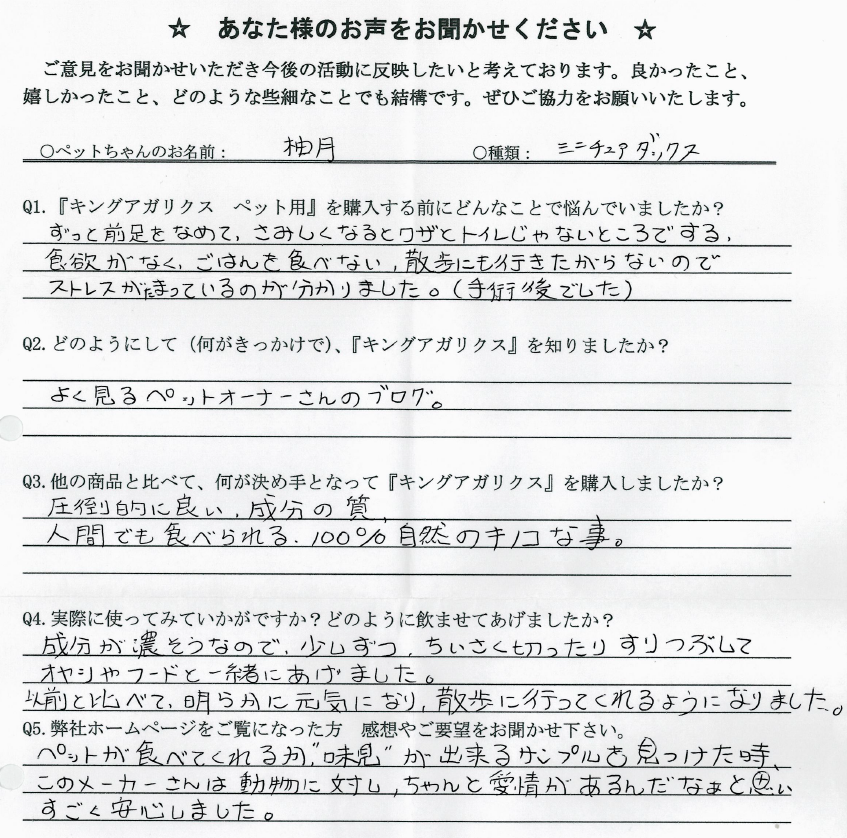 ☆ あなた様のお声をお聞かせください ☆
ご意見をお聞かせいただき今後の活動に反映したいと考えております。良かったこと、
嬉しかったこと、どのような些細なことでも結構です。ぜひご協力をお願いいたします。
○ペットちゃんのお名前： 柚月 ○種類： ミニチュアダックス
Q1.『キングアガリクス ペット用』を購入する前にどんなことで悩んでいましたか？
ずっと前足をなめて、さみしくなるとワザとトイレじゃないところでする、
食欲がなく、ごはんを食べない、散歩にも行きたがらないので
ストレスがたまっているのが分かりました。（手術後でした）
Q2.どのようにして（何がきっかけで）、『キングアガリクス』を知りましたか？
よく見るペットオーナーさんのブログ。
Q3.他の商品と比べて、何が決め手となって『キングアガリクス』を購入しましたか？
圧倒的に良い、成分の質、
人間でも食べられる、100%自然のキノコな事。
Q4.実際に使ってみていかがですか？どのように飲ませてあげましたか？
成分が濃そうなので、少しずつ、ちいさく切ったりすりつぶして
オヤツやフードと一緒にあげました。
以前と比べて、明らかに元気になり、散歩に行ってくれるようになりました。
Q5.弊社ホームページをご覧になった方 感想やご要望をお聞かせ下さい。
ペットが食べてくれるか"味見"が出来るサンプルを見つけた時、
このメーカーさんは動物に対し、ちゃんと愛情があるんだなぁと思い
すごく安心しました。